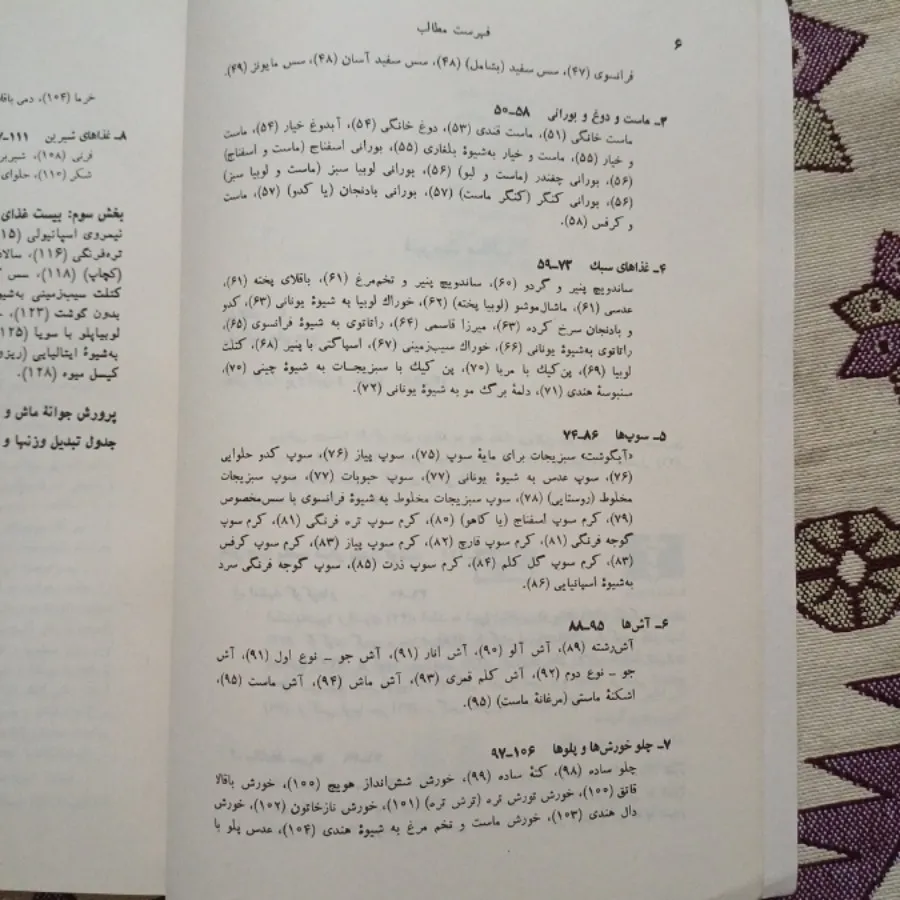 فهرست مطالب
۶
فرانسوی (۴۷)، سس سفید (بشامل) (۴۸)، سس سفید آسان (۴۸)، سس مایونز (۴۹).
۳ـ ماست و دوغ و بورانی ۵۸ـ۵۰
ماست خانگی (۵۱)، ماست قندی (۵۳)، دوغ خانگی (۵۴)، آبدوغ خیار (۵۴)، ماست
و خیار (۵۵)، ماست و خیار به‌شیوهٔ بلغاری (۵۵)، بورانی اسفناج (ماست و اسفناج)
(۵۶)، بورانی چغندر (ماست و لبو) (۵۶)، بورانی لوبیا سبز (ماست و لوبیا سبز)
(۵۶)، بورانی کنگر (کنگر ماست) (۵۷)، بورانی بادنجان (یا کدو) (۵۷)، ماست
و کرفس (۵۸).
۴ـ غذاهای سبک ۷۳ـ۵۹
ساندویچ پنیر و گردو (۶۰)، ساندویچ پنیر و تخم‌مرغ (۶۱)، باقلای پخته (۶۱)،
عدسی (۶۱)، ماشال‌موشو (لوبیا پخته) (۶۲)، خوراک لوبیا به شیوهٔ یونانی (۶۳)، کدو
و بادنجان سرخ کرده (۶۳)، میرزا قاسمی (۶۴)، راتاتوی به شیوهٔ فرانسوی (۶۵)،
راتاتوی به‌شیوهٔ یونانی (۶۶)، خوراک سیب‌زمینی (۶۷)، اسپاگتی با پنیر (۶۸)، کتلت
لوبیا (۶۹)، پن‌کیک با مربا (۷۰)، پن کیک با سبزیجات به شیوهٔ چینی (۷۰)،
سنبوسهٔ هندی (۷۱)، دلمهٔ برگ مو به شیوهٔ یونانی (۷۲).
۵ـ سوپ‌ها ۸۶ـ۷۴
«آبگوشت» سبزیجات برای مایهٔ سوپ (۷۵)، سوپ پیاز (۷۶)، سوپ کدو حلوایی
(۷۶)، سوپ عدس به شیوهٔ یونانی (۷۷)، سوپ حبوبات (۷۷)، سوپ سبزیجات
مخلوط (روستایی) (۷۸)، سوپ سبزیجات مخلوط به شیوهٔ فرانسوی با سس‌مخصوص
(۷۹)، کرم سوپ اسفناج (یا کاهو) (۸۰)، کرم سوپ تره فرنگی (۸۱)، کرم سوپ
گوجه فرنگی (۸۱)، کرم سوپ قارچ (۸۲)، کرم سوپ پیاز (۸۳)، کرم سوپ کرفس
(۸۳)، کرم سوپ گل کلم (۸۴)، کرم سوپ ذرت (۸۵)، سوپ گوجه فرنگی سرد
به‌شیوهٔ اسپانیایی (۸۶).
۶ـ آش‌ها ۹۵ـ۸۸
آش‌رشته (۸۹)، آش آلو (۹۰)، آش انار (۹۱)، آش جو ـ نوع اول (۹۱)، آش
جو ـ نوع دوم (۹۲)، آش کلم قمری (۹۳)، آش ماش (۹۴)، آش ماست (۹۵)،
اشکنهٔ ماستی (مرغانه ماست) (۹۵).
۷ـ چلو خورش‌ها و پلوها ۱۰۶ـ۹۷
چلو ساده (۹۸)، کتهٔ ساده (۹۹)، خورش شش‌انداز هویج (۱۰۰)، خورش باقالا
قاتق (۱۰۰)، خورش تورش تره (ترش تره) (۱۰۱)، خورش نازخاتون (۱۰۲)، خورش
دال هندی (۱۰۳)، خورش ماست و تخم مرغ به شیوهٔ هندی (۱۰۴)، عدس پلو با
خرما (۱۰۴)، دمی
۸ـ غذاهای شیرین ۱۱۱
فرنی (۱۰۸)،
شکر (۱۱۰)، حلوای
بخش سوم: بیست غذای
نیمروی اسپانیولی
تره‌فرنگی (۱۱۶)،
(کچاپ) (۱۱۸)، سس
کتلت سیب‌زمینی
بدون گوشت (۱۲۳)،
لوبیاپلو با سویا
به‌شیوهٔ ایتالیایی
کیسل میوه (۱۲۸).
پرورش جوانهٔ ماش و
جدول تبدیل وزنها و